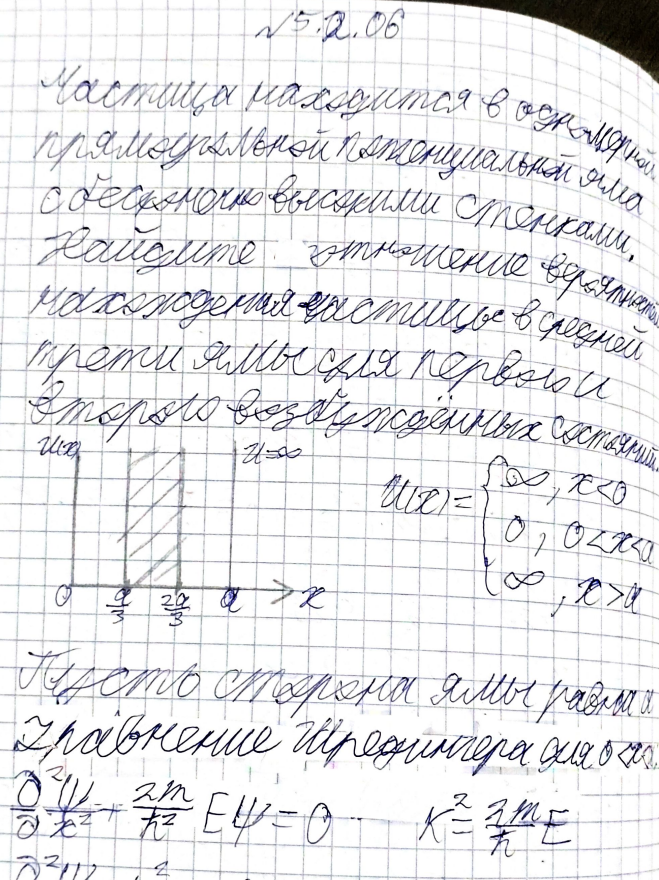 №5.2.06
Частица находится в одномерной
прямоугольной потенциальной яма
с бесконечно высокими стенками.
Найдите отношение вероятностей
нахождения частицы в средней
трети ямы для первого и
второго возбуждённых состояний.
U=∞ U=∞
U(x) = { ∞, x<0
0, 0<x<a
∞, x>a
0 a/3 2a/3 a x
Пусть сторона ямы равна a
Уравнение Шредингера для 0<x<
∂²Ψ/∂x² + 2m/ħ² EΨ = 0 K² = 2m/ħ E